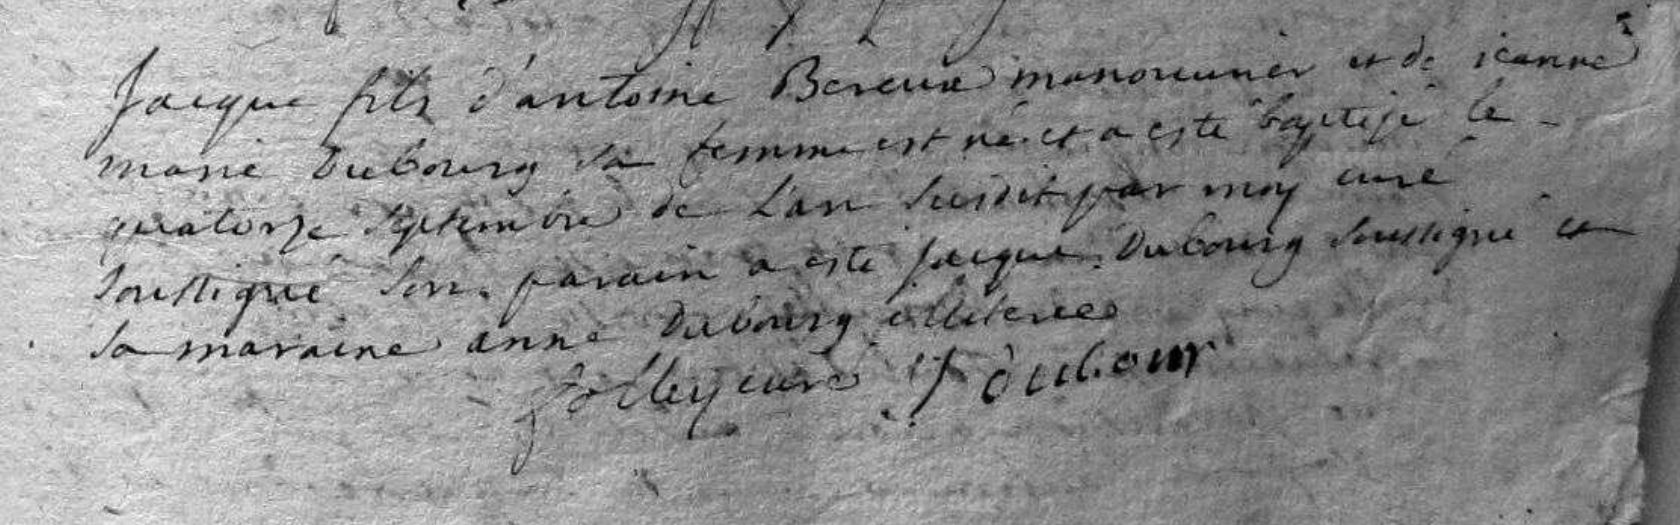 Jacque fils d'antoine Bereux manouvrier et de jeanne
marie Dubourg sa femme est né et a esté baptisé le
quatorze septembre de L'an susdit par moy curé
soussigné son parain a esté jacque Dubourg soussigné et
sa maraine anne Dubourg illiterée
Jolley curé J dubour